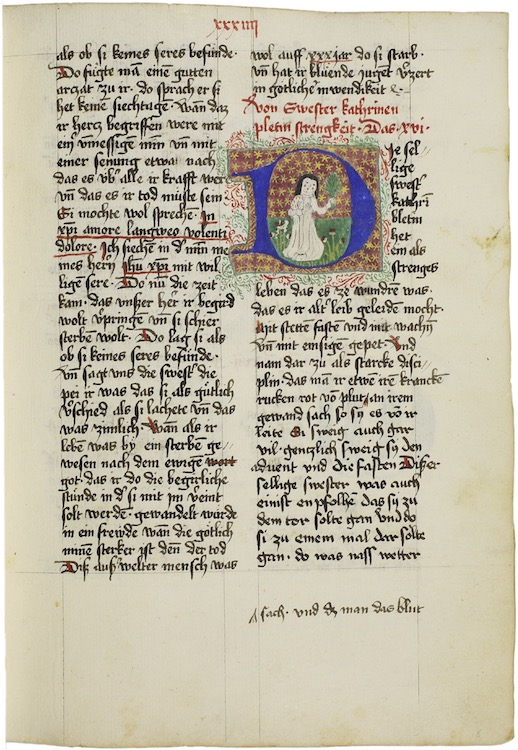 xxxiiij
als ob si keines seres befunde·
Do fugte mā eine gutten
arczat zu ir· do sprach er si
het keine siechtage· wan daz
ir hercz begriffen were mit
ein vmessige min vn̄ mit
einer senung etwaz nach
das es vb͛ alle ir krafft were
vn̄ das es ir tod muste sein
Si mochte wol spreche· In
xp̄i amore langweo volenti
dolore· Ich siechen in d͛ min me
mes herr͂ Jhu xp̄i mit wil
lige sere· Do nu die zeit
kam· das vnßer her ir begird
wolt v͛pringen vn̄ si schier
sterben wolt· Do lag si als
ob si keines seres befunde·
vn̄ sagt vns die swest͛ die
pei ir was das si als gutlich
v͛schied als si lachete vn̄ das
was zimlich· Wan als ir
lebē was by ein sterben ge
wesen nach dem ewigē wort
got· das ir do die begirliche
stunde in d͛ si mit im v͛eint
solt werdē· gewandelt wurde
in ein freude wan die gotlich
minē sterker ist denē der tod
Diß außwelter mensch was
wol auff xxx jar do si starb·
vn̄ hat ir bluende juget v͛zert
in gotliche inwendikeit
von Swester kathrinen
pletin strengkeit· Das ·xvi·
Die sel
lige
swest͛
kathri
bletin
het
ein als
strenges
leben das es ze wundre was·
das es ir alt͛ leib geleide mocht·
Mit stette faste vnd mit wachn̄
vn̄ mit einsigen gepet· Vnd
nam dar zu als starcke disci
plin· das ma ir etwe irē kranckē
rucken rot vō plut an irem
gewand sach so sy es vō ir
leite Si sweig auch gar
vil· genczlich sweig sy den
aduent vnd die fasten Dißer
sellige swester was auch
einst enpfolhē das sy zu
dem tor solte gan vnd do
si zu einem mal dar solte
gan· do was nass wetter
sach· vnd dz man das blut